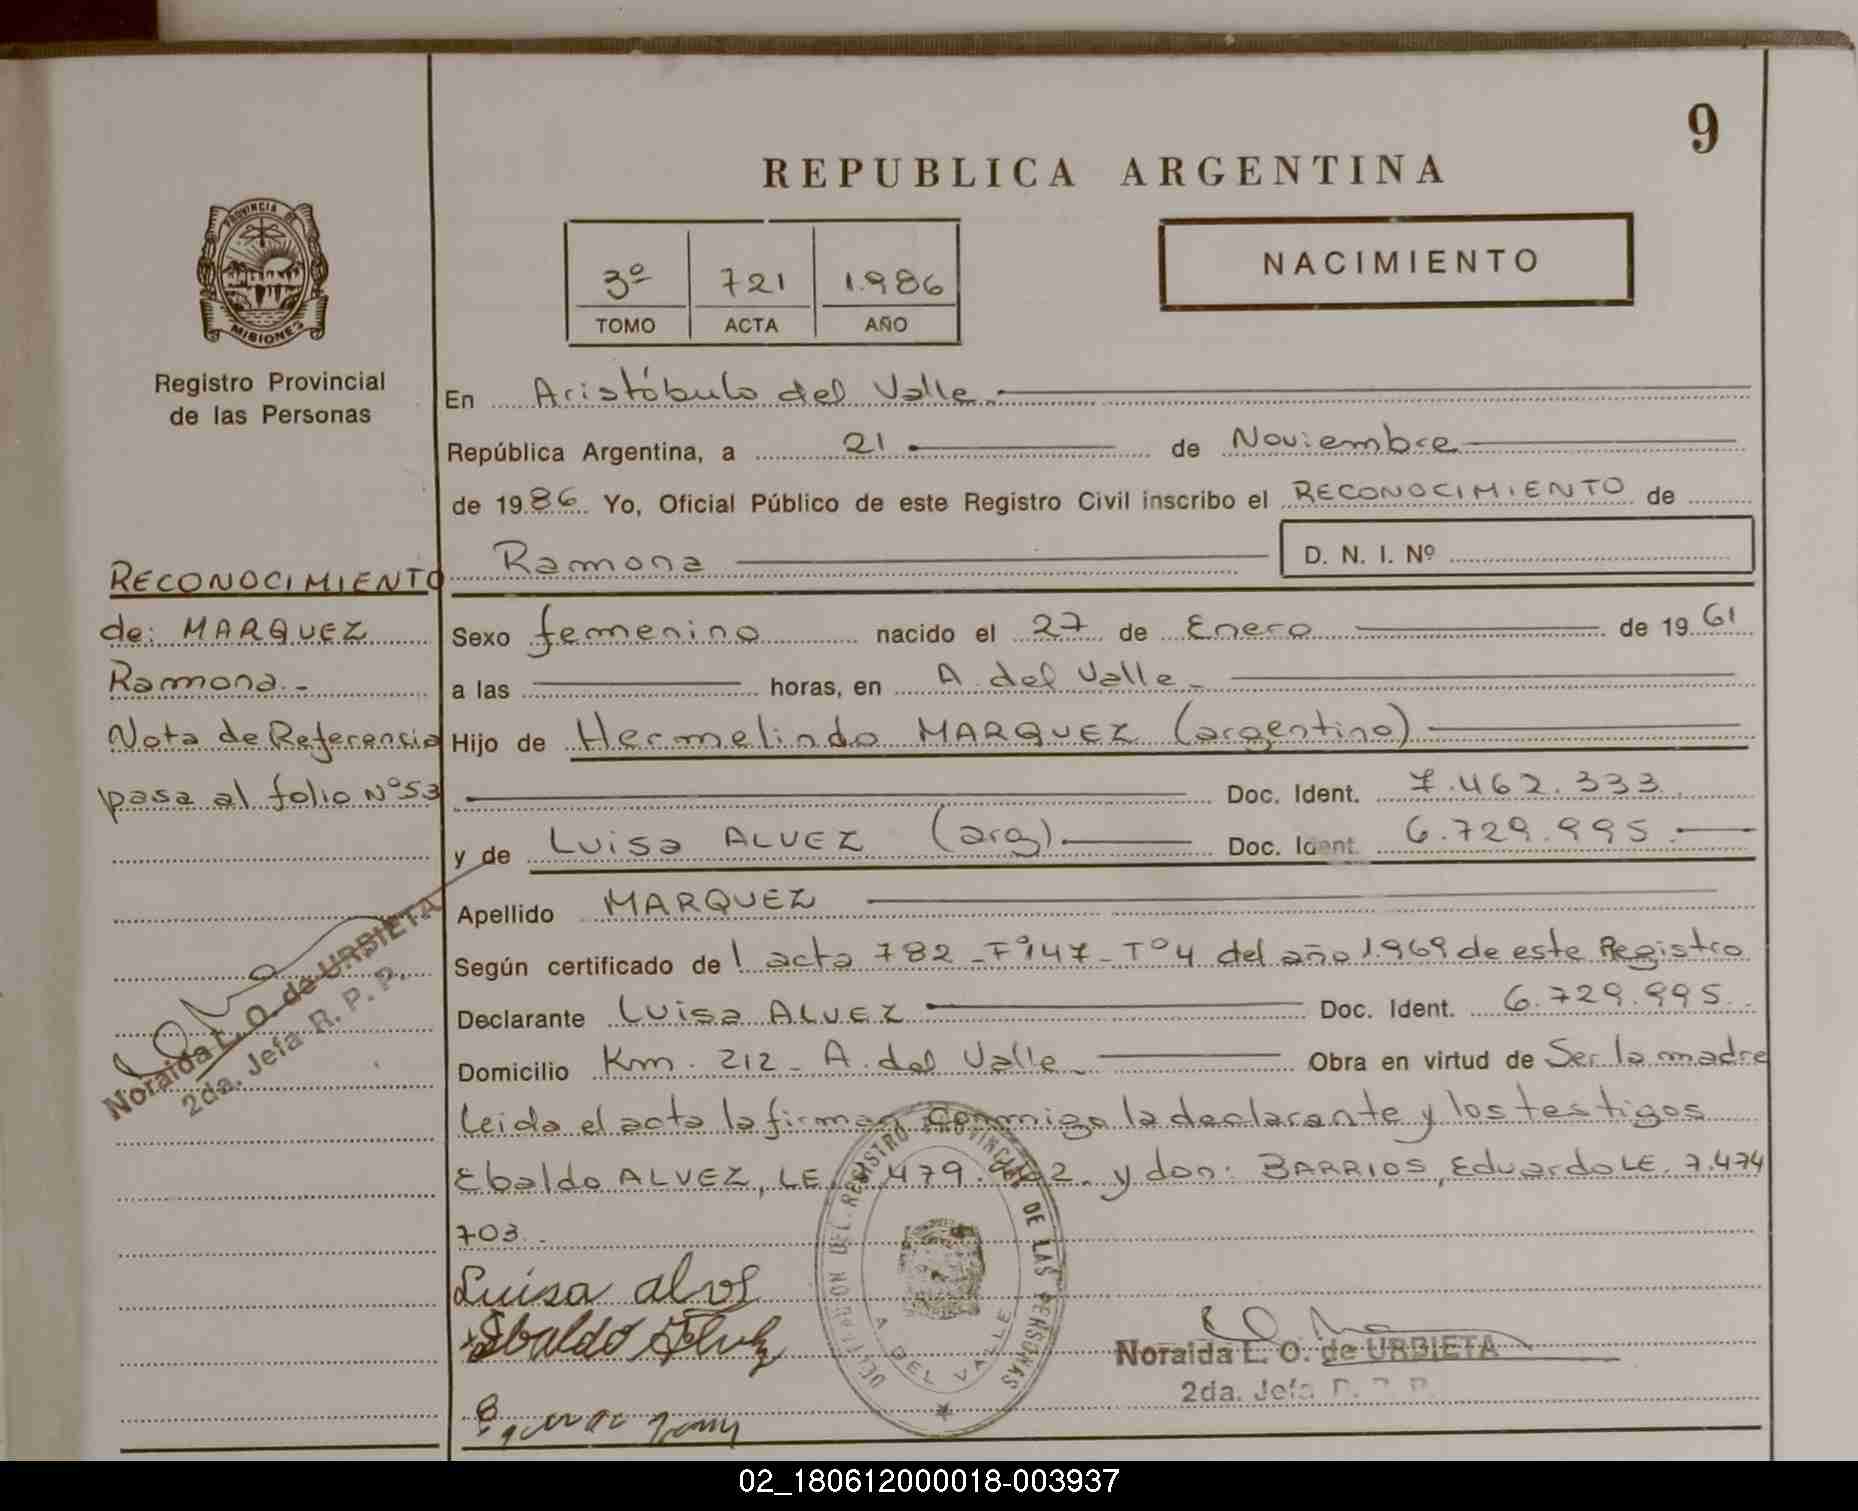 9
REPUBLICA ARGENTINA
PROVINCIA DE
MISIONES
3º 721 1.986
TOMO ACTA AÑO
NACIMIENTO
Registro Provincial
de las Personas
En Aristóbulo del Valle.
República Argentina, a 21 de Noviembre
de 1986. Yo, Oficial Público de este Registro Civil inscribo el RECONOCIMIENTO de
Ramona D. N. I. Nº
RECONOCIMIENTO
de: MARQUEZ
Ramona.-
Nota de Referencia
pasa al folio Nº53
Noraida L. O. de URBIETA
2da. Jefa R. P. P.
Sexo femenino nacido el 27 de Enero de 1961
a las horas, en A. del Valle-
Hijo de Hermelindo MARQUEZ (argentino)
Doc. Ident. 7.462.333
y de Luisa ALVEZ (arg) Doc. Ident. 6.729.995.
Apellido MARQUEZ
Según certificado del acta 782-Fº147-Tº4 del año 1.969 de este Registro
Declarante Luisa ALVEZ Doc. Ident. 6.729.995
Domicilio Km. 212- A. del Valle- Obra en virtud de Ser la madre
Leida el acta la firman conmigo la declarante y los testigos
Ebaldo ALVEZ, LE 479. 2. y don: BARRIOS, Eduardo LE. 7.474
703.-
Luisa alves
Ebaldo
DEL REGISTRO PROVINCIAL DE LAS PERSONAS
A DEL VALLE
Noraida L. O. de URBIETA
2da. Jefa
02_180612000018-003937